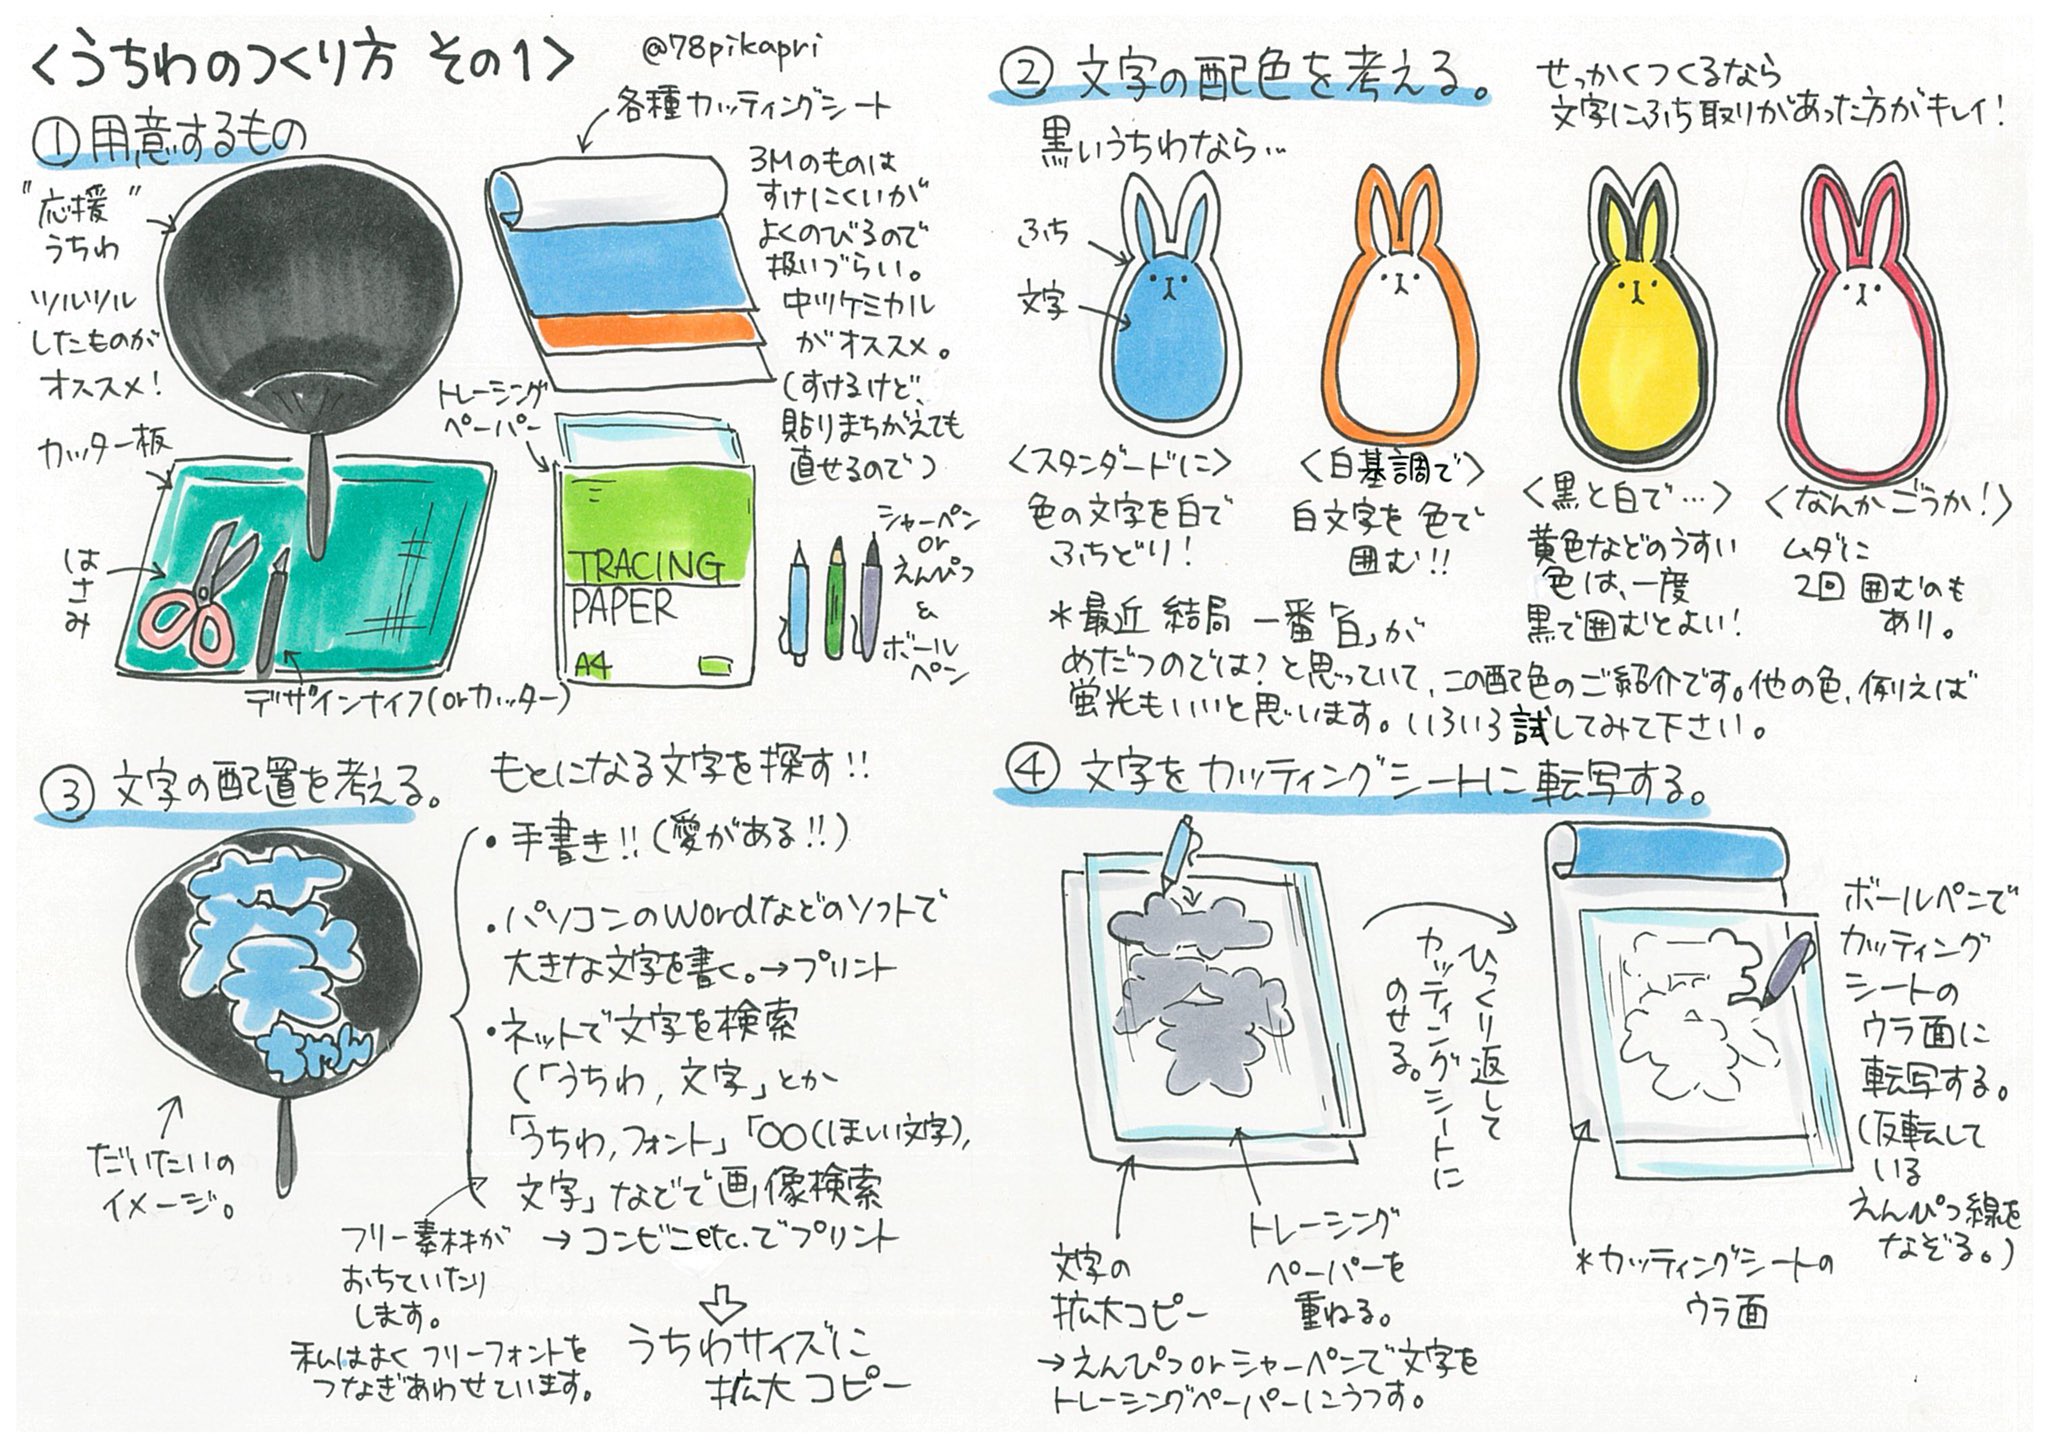 ＜うちわのつくり方 その1＞
@78pikapri
①用意するもの
"応援"
うちわ
ツルツル
したものが
オススメ!
各種カッティングシート
3Mのものは
すけにくいが
よくのびるので
扱いづらい。
中ツケミカル
がオススメ。
(すけるけど、
貼りまちがえても
直せるので)
トレーシング
ペーパー
カッター板
はさみ
デザインナイフ(orカッター)
TRACING
PAPER
A4
シャーペン
or
えんぴつ
&
ボール
ペン
②文字の配色を考える。
せっかくつくるなら
文字にふち取りがあった方がキレイ!
黒いうちわなら…
ふち
文字
＜スタンダードに＞
色の文字を白で
ふちどり!
＜白基調で＞
白文字を色で
囲む!!
＜黒と白で…＞
黄色などのうすい
色は、一度
黒で囲むとよい!
＜なんかごうか!＞
ムダに
2回囲むのも
あり。
*最近 結局 一番「白」が
めだつのでは?と思っていて、この配色のご紹介です。他の色、例えば
蛍光もいいと思います。いろいろ試してみて下さい。
③文字の配置を考える。
もとになる文字を探す!!
菜
ちゃん
だいたいの
イメージ。
・手書き!!(愛がある!!)
・パソコンのWordなどのソフトで
大きな文字を書く。→プリント
・ネットで文字を検索
(「うちわ,文字」とか
「うちわ,フォント」「○○(ほしい文字),
文字」などで画像検索
→コンビニetc.でプリント
フリー素材が
おちていたり
します。
私はよくフリーフォントを
つなぎあわせています。
うちわサイズに
拡大コピー
④文字をカッティングシートに転写する。
ひっくり返して
カッティングシートに
のせる。
文字の
拡大コピー
トレーシング
ペーパーを
重ねる。
→えんぴつorシャーペンで文字を
トレーシングペーパーにうつす。
ボールペンで
カッティング
シートの
ウラ面に
転写する。
(反転して
いる
えんぴつ線を
なぞる。)
*カッティングシートの
ウラ面